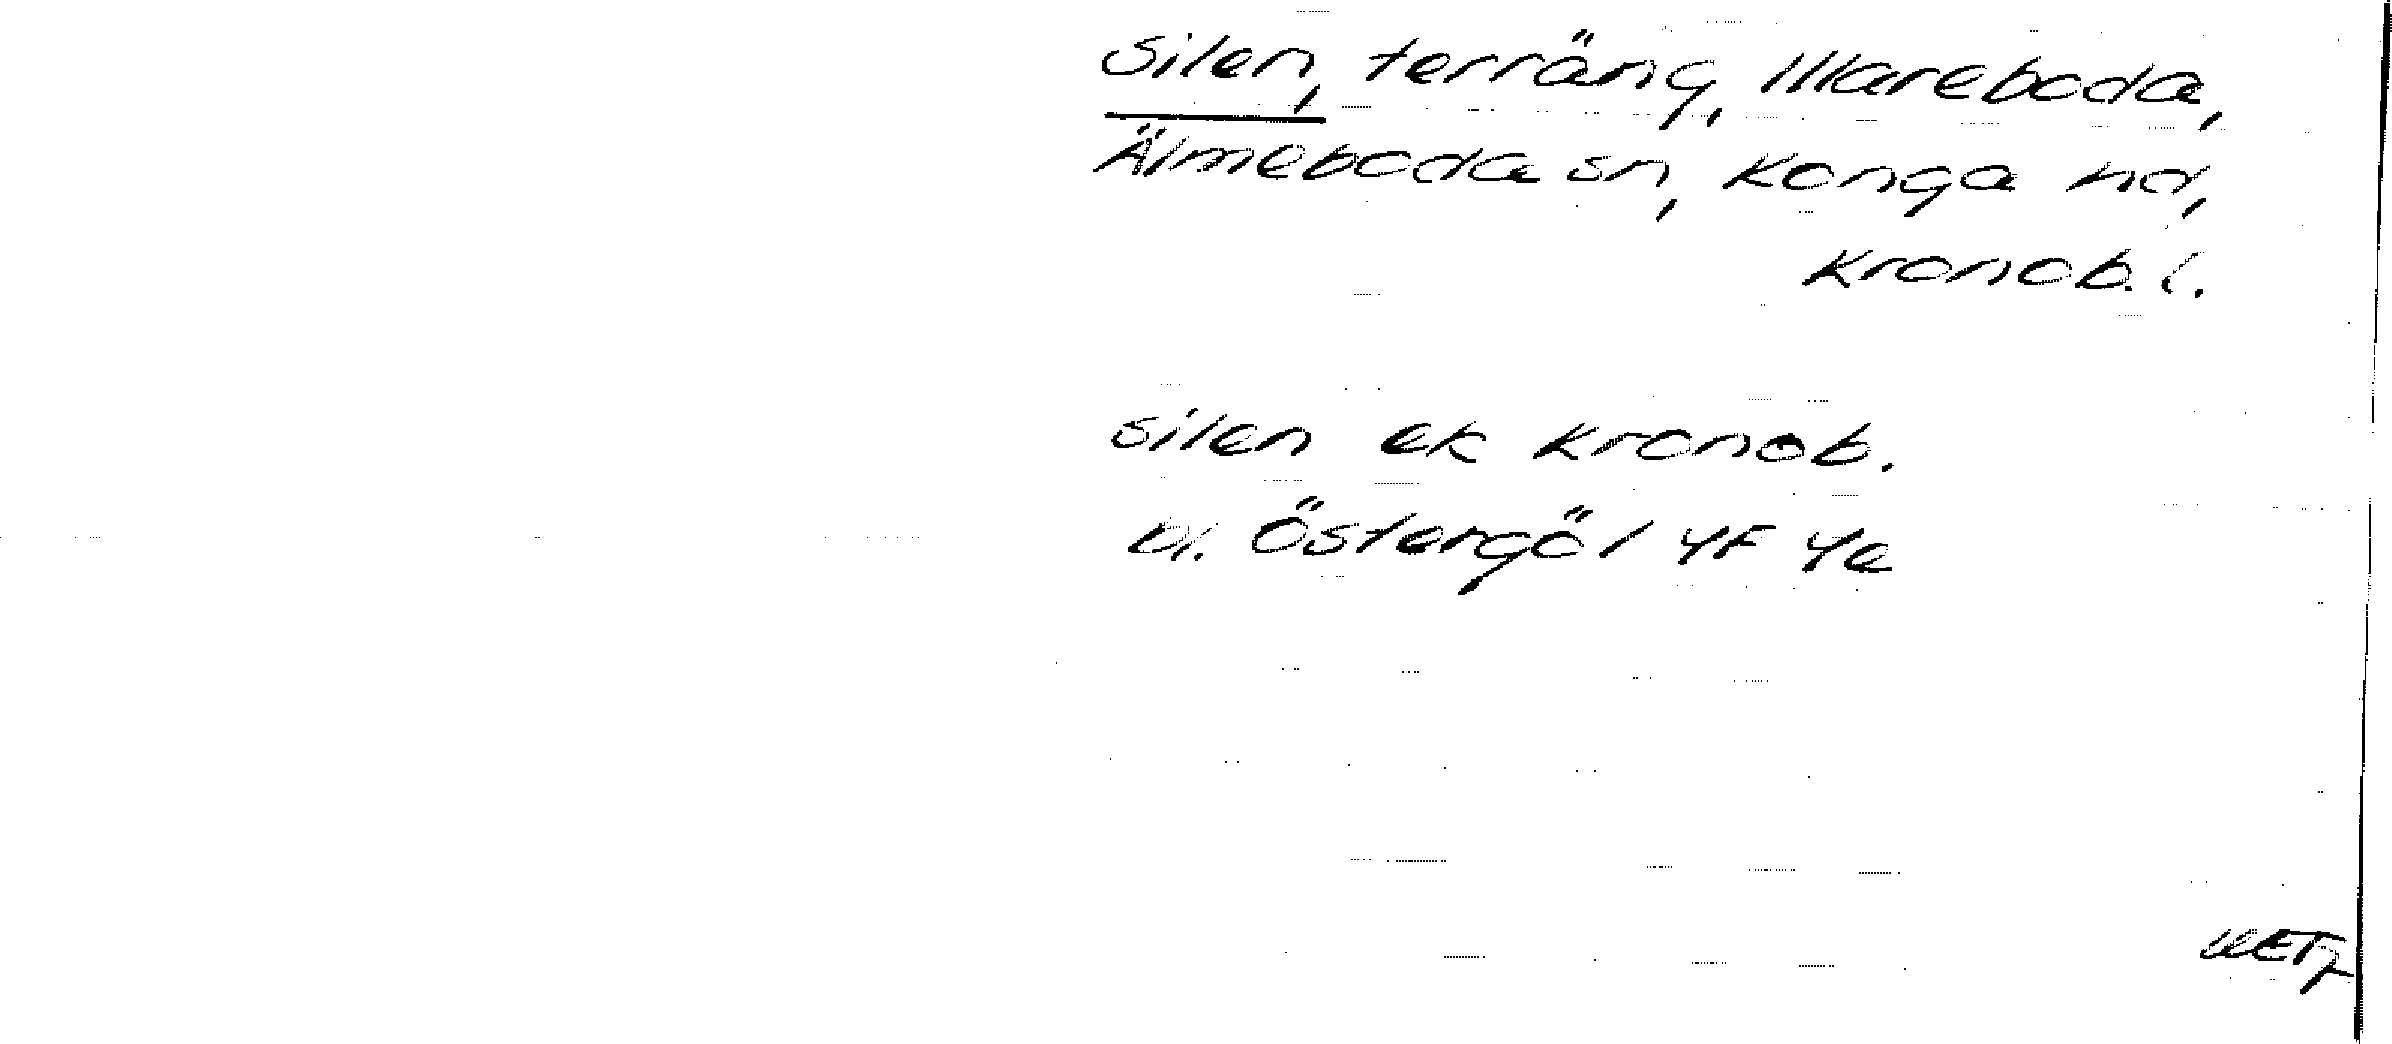 Silen, terräng, Illareboda,
Älmeboda sn, Konga hd,
Kronob. l.
silen ek Kronob.
bl. Östergöl 4F 4e